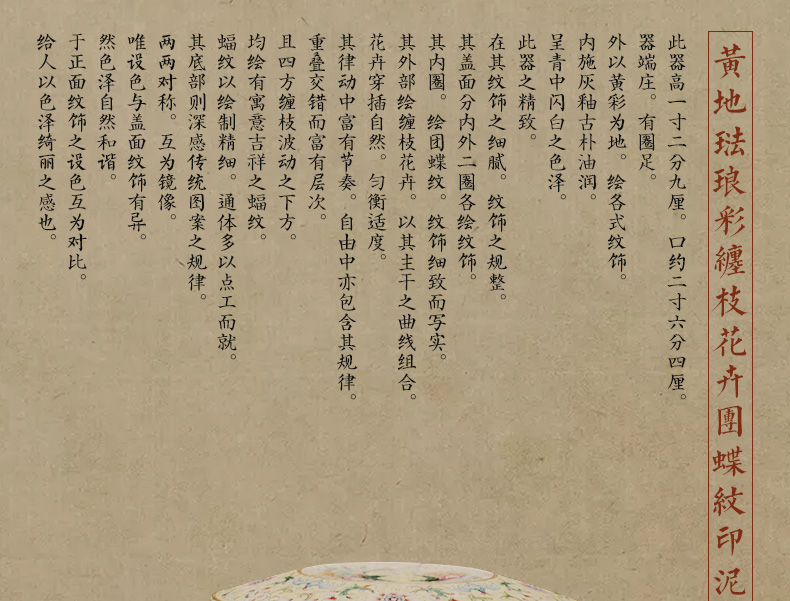 黃地琺瑯彩纏枝花卉團蝶紋印泥
此器高一寸二分九厘。口约二寸六分四厘。
器端庄。有圈足。
外以黄彩为地。绘各式纹饰。
内施灰釉古朴油润。
呈青中闪白之色泽。
此器之精致。
在其纹饰之细腻。纹饰之规整。
其盖面分内外二圈各绘纹饰。
其内圈。绘团蝶纹。纹饰细致而写实。
其外部绘缠枝花卉。以其主干之曲线组合。
花卉穿插自然。匀衡适度。
其律动中富有节奏。自由中亦包含其规律。
重叠交错而富有层次。
且四方缠枝波动之下方。
均绘有寓意吉祥之蝠纹。
蝠纹以绘制精细。通体多以点工而就。
其底部则深感传统图案之规律。
两两对称。互为镜像。
唯设色与盖面纹饰有异。
然色泽自然和谐。
于正面纹饰之设色互为对比。
给人以色泽绮丽之感也。